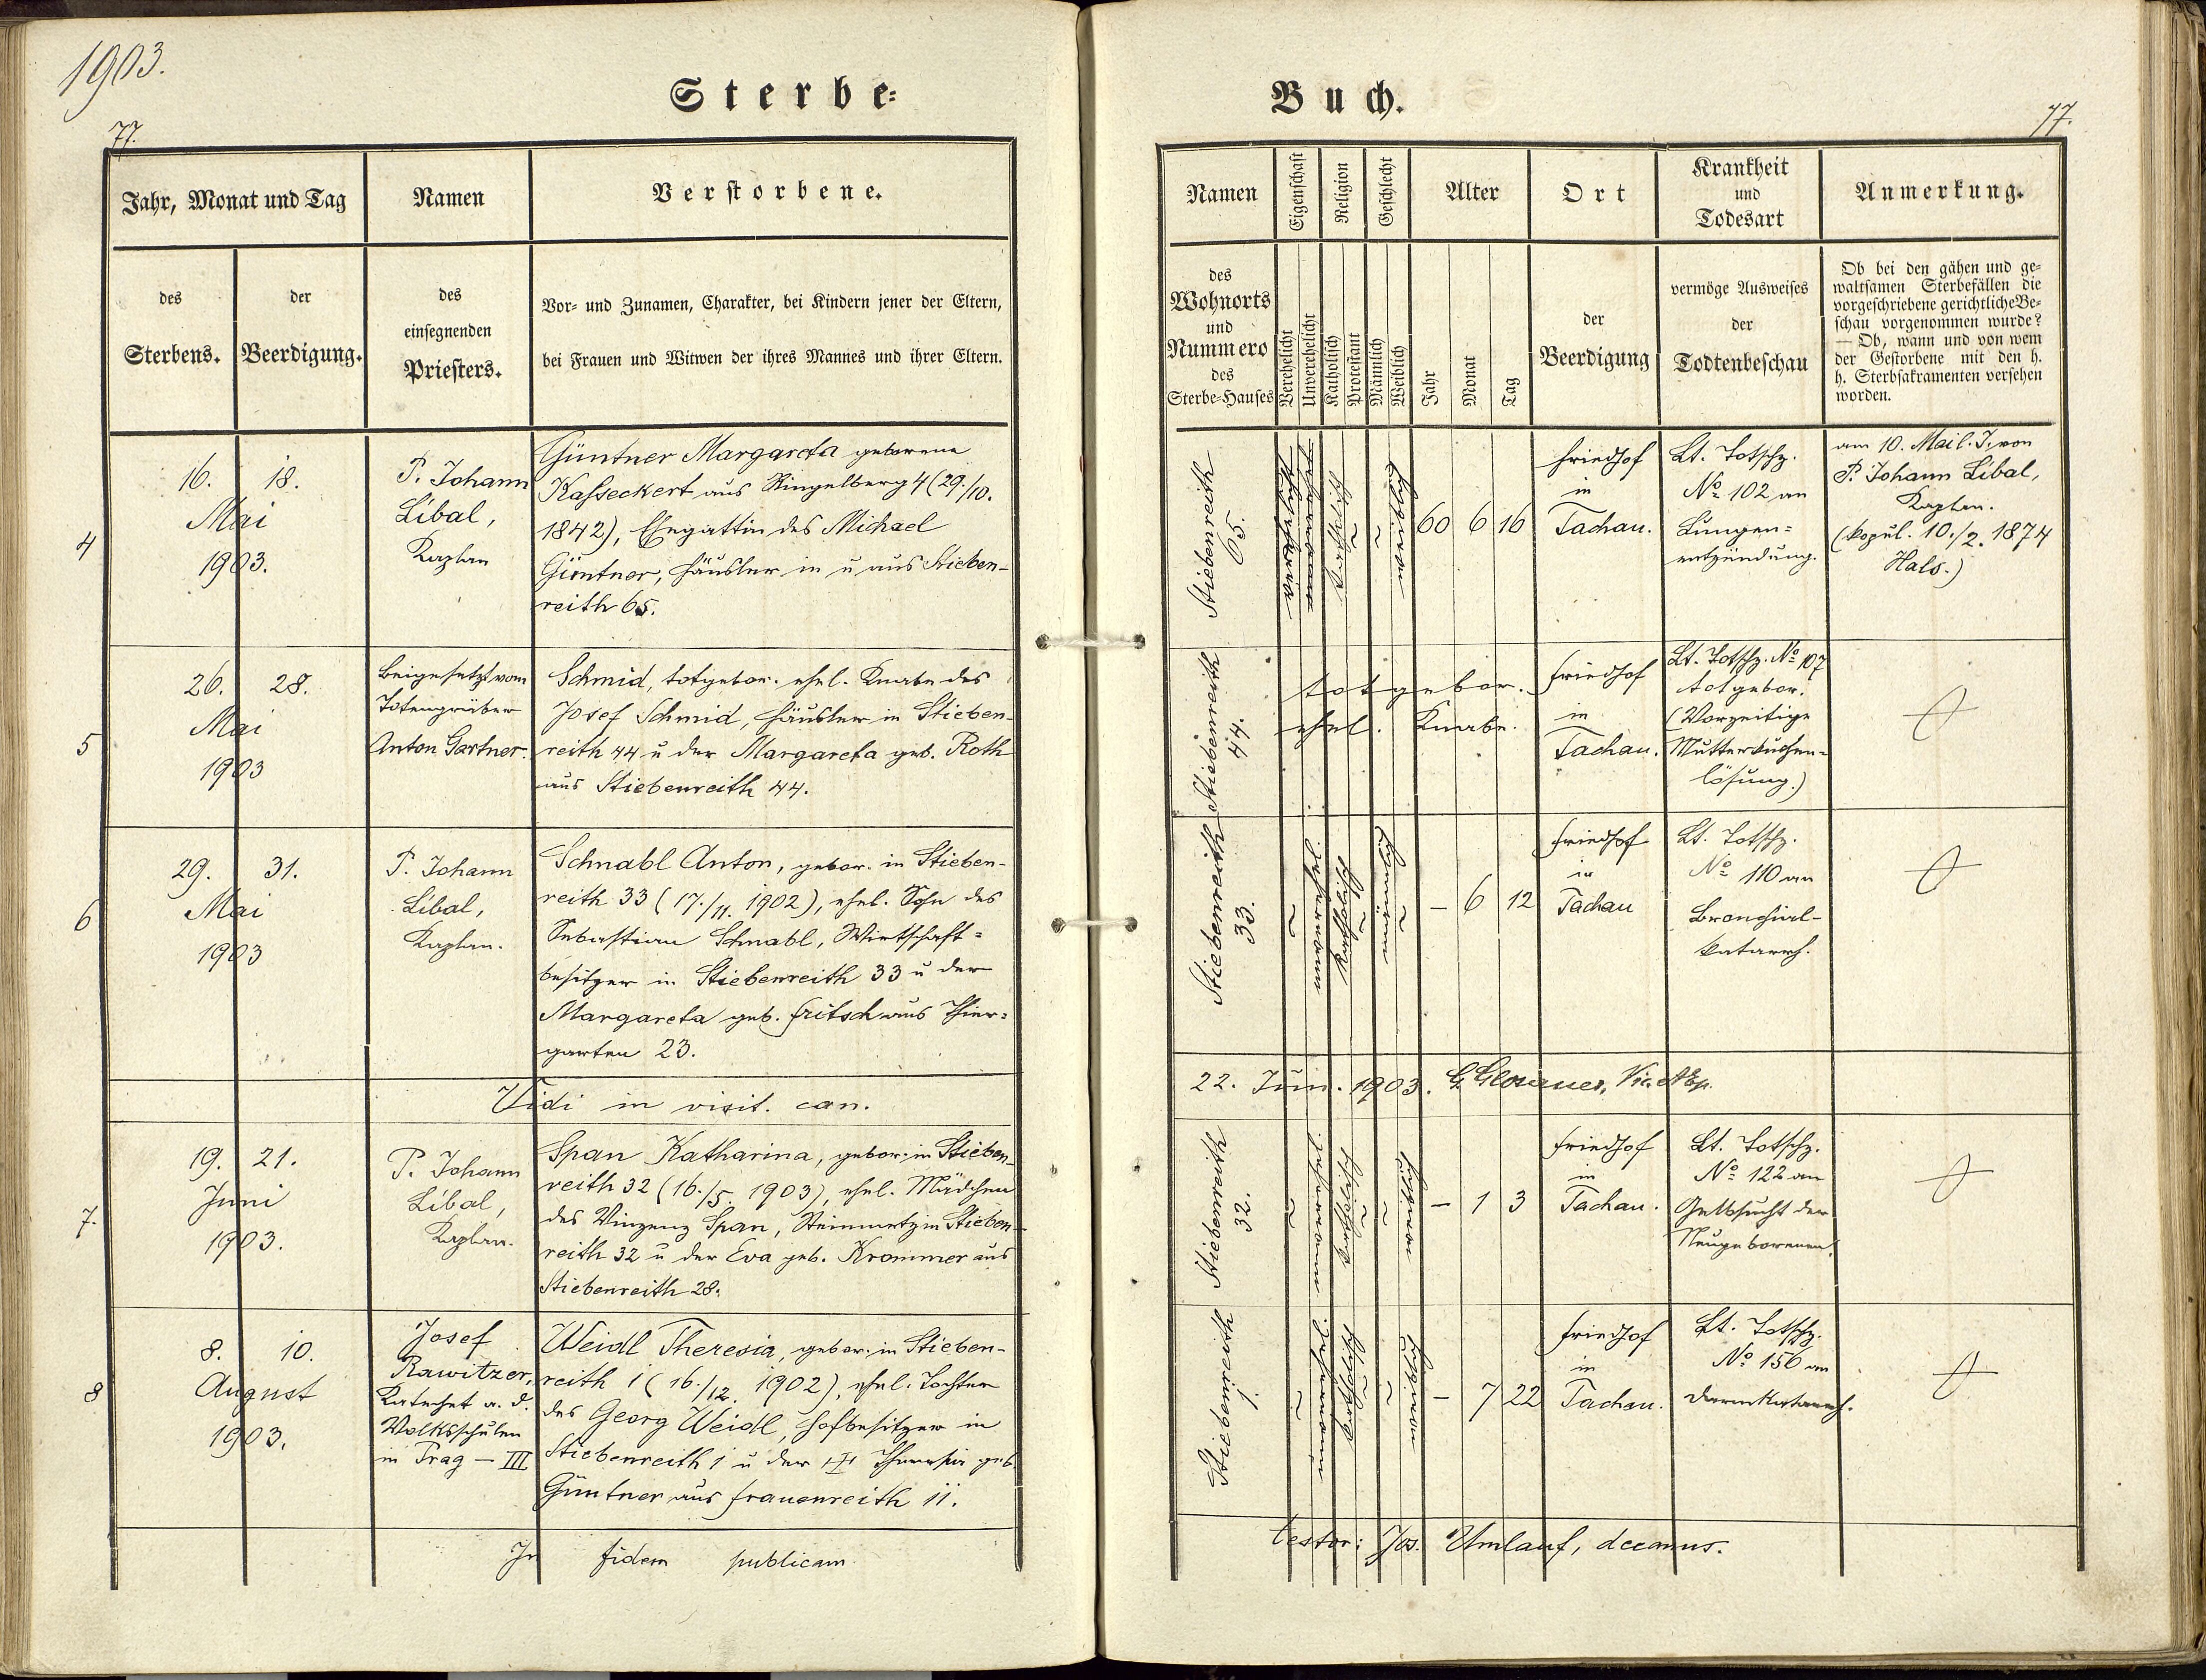 1903.
Sterbe-
77.
Jahr, Monat und Tag
Namen
Verstorbene.
des
Sterbens.
der
Beerdigung.
des
einsegnenden
Priesters.
Vor- und Zunamen, Charakter, bei Kindern jener der Eltern,
bei Frauen und Witwen der ihres Mannes und ihrer Eltern.
4
16. 18.
Mai
1903.
P. Johann
Líbal,
Kaplan
Güntner Margareta geborene
Kasseckert aus Ringelberg 4 (29./10.
1842), Ehegattin des Michael
Güntner, Häusler in u aus Stieben-
reith 65.
5
26. 28.
Mai
1903
Beigesetzt vom
Totengräber
Anton Gartner.
Schmid, totgebor. ehel. Knabe des
Josef Schmid, Häusler in Stieben-
reith 44 u der Margareta geb. Roth
aus Stiebenreith 44.
6
29. 31.
Mai
1903
P. Johann
Líbal,
Kaplan.
Schnabl Anton, gebor. in Stieben-
reith 33 (17./11. 1902), ehel. Sohn des
Sebastian Schnabl, Wirtschaft-
besitzer in Stiebenreith 33 u der
Margareta geb. Fritsch aus Thier-
garten 23.
Vidi in visit. can.
7.
19. 21.
Juni
1903.
P. Johann
Líbal,
Kaplan.
Span Katharina, gebor. in Stieben-
reith 32 (16./5. 1903), ehel. Mädchen
des Vinzenz Span, Steinmetz in Stieben-
reith 32 u der Eva geb. Krommer aus
Stiebenreith 28.
8
8. 10.
August
1903.
Josef
Rawitzer,
Katechet a. d.
Volksschulen
in Prag - III
Weidl Theresia, gebor. in Stieben-
reith 1 (16./12. 1902), ehel. Tochter
des Georg Weidl, Hofbesitzer in
Stiebenreith 1 u der Theresia geb.
Güntner aus Frauenreith 11.
In fidem publicam
Buch.
77.
Namen
Eigenschaft
Religion
Geschlecht
Alter
Ort
Krankheit
und
Todesart
Anmerkung.
des
Wohnorts
und
Nummero
des
Sterbe-Hauses
Verehelicht
Unverehelicht
Katholisch
Protestant
Männlich
Weiblich
Jahr
Monat
Tag
der
Beerdigung
vermöge Ausweises
der
Todtenbeschau
Ob bei den gähen und ge-
waltsamen Sterbefällen die
vorgeschriebene gerichtliche Be-
schau vorgenommen wurde?
— Ob, wann und von wem
der Gestorbene mit den h.
h. Sterbsakramenten versehen
worden.
Stiebenreith
65.
verehelicht
katholisch
weiblich
60 6 16
Friedhof
in
Tachau.
Lt. Totschz.
No 102 an
Lungen-
entzündung.
am 10. Mai l. J. von
P. Johann Líbal,
Kaplan.
(kopul. 10./2. 1874
Hals.)
Stiebenreith
44.
totgebor.
ehel. Knabe.
Friedhof
in
Tachau.
Lt. Totschz. No 107
totgebor.
(Vorzeitige
Mutterkuchen-
lösung.)
Stiebenreith
33.
unverehel.
katholisch
männlich
- 6 12
Friedhof
in
Tachau
Lt. Totschz.
No 110 an
Bronchial-
katarrh.
22. Jun. 1903.
Stiebenreith
32.
unverehel.
katholisch
weiblich
- 1 3
Friedhof
in
Tachau.
Lt. Totschz.
No 122 an
Gelbsucht der
Neugeborenen.
Stiebenreith
1.
unverehel.
katholisch
weiblich
- 7 22
Friedhof
in
Tachau.
Lt. Totschz.
No 156 an
Darmkatarrh.
testor: Jos. Umlauf, decanus.